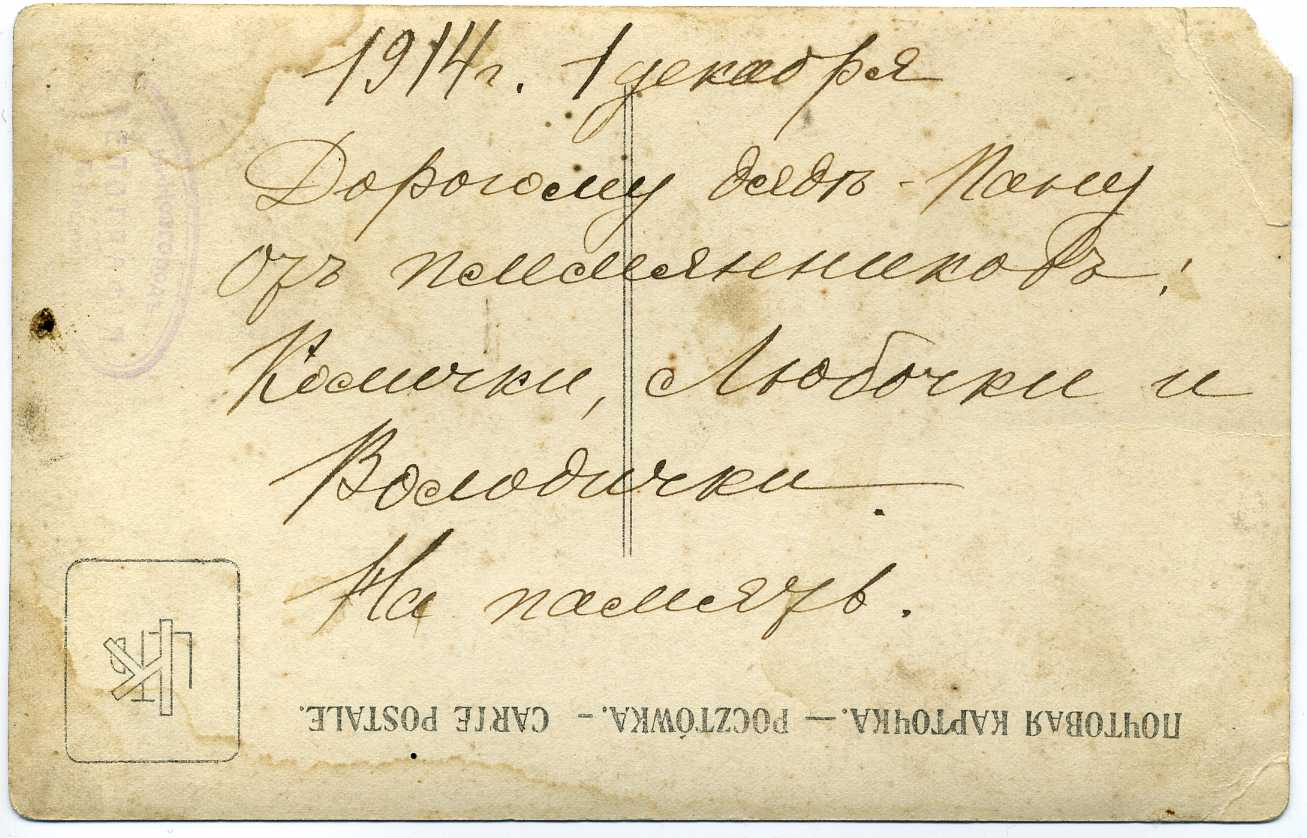 1914 г. 1 декабря
Дорогому дядѣ - Пану
отъ племянниковъ:
Комички, Любочки и
Володички.
На память.
ПОЧТОВАЯ КАРТОЧКА. — POCZTÓWKA. - CARTE POSTALE.